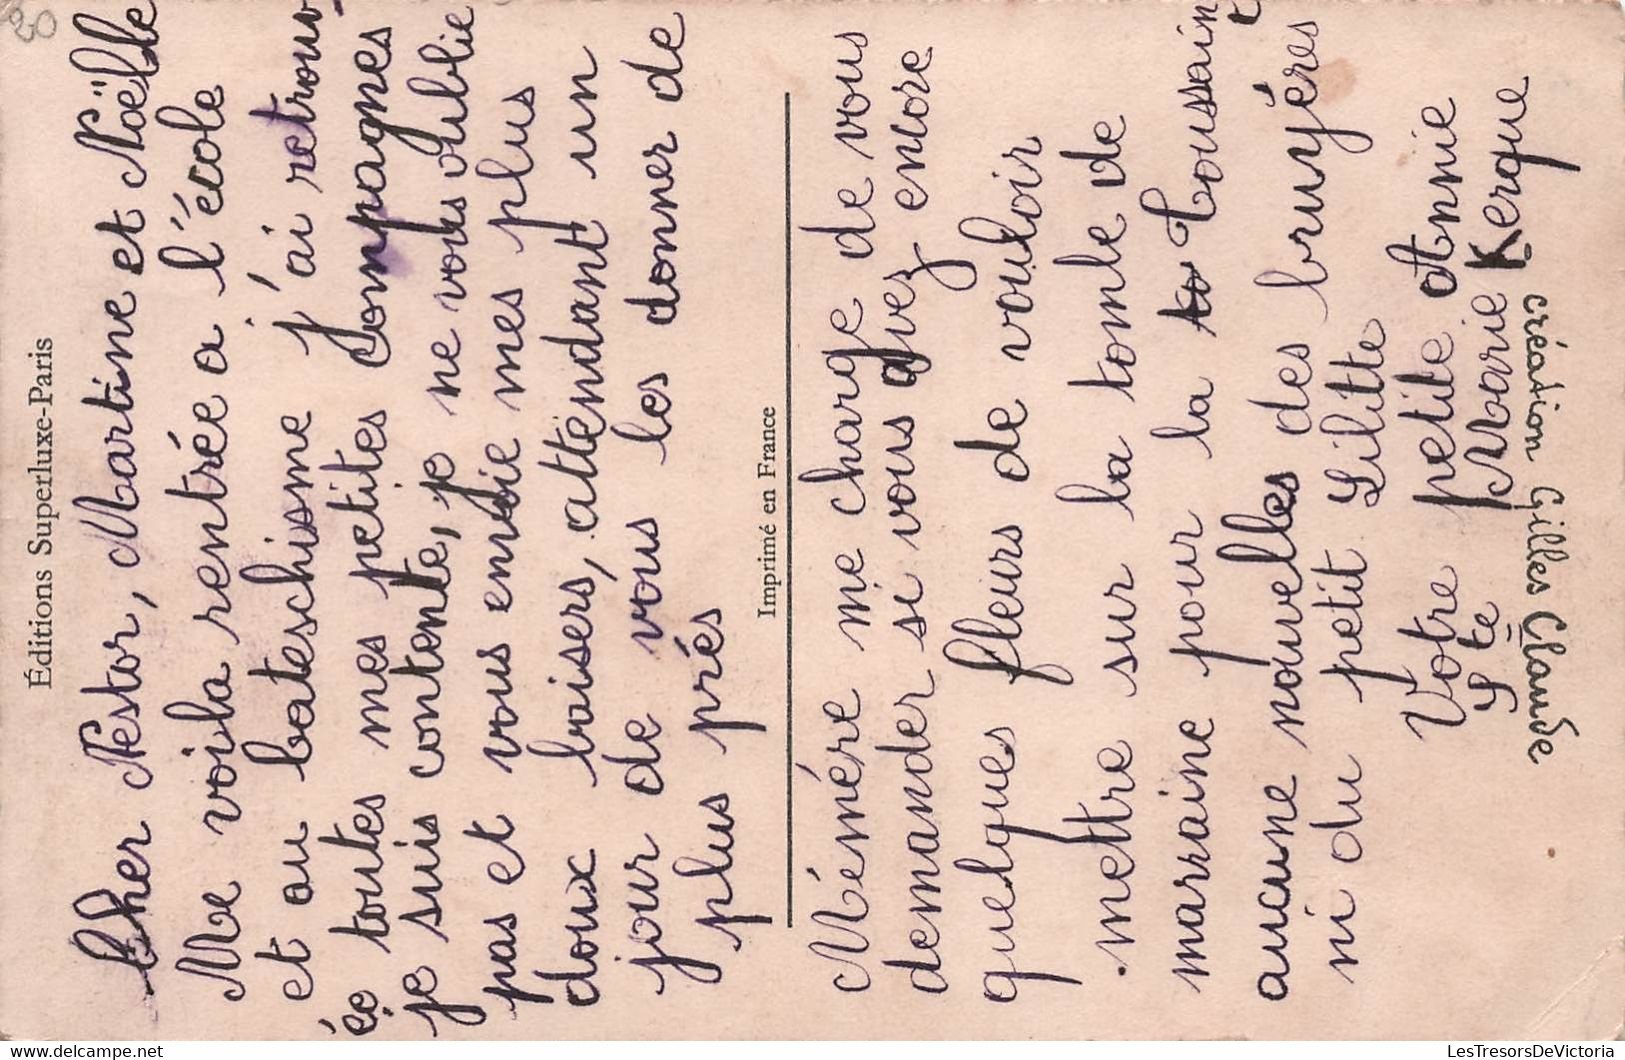 20
Éditions Superluxe-Paris
Cher Nestor, Martine et Noëlle
Me voila rentrée a l'école
et au bateschisme j'ai retrouv-
ée toutes mes petites compagnes
je suis contente, je ne vous oublie
pas et vous envoie mes plus
doux baisers, attendant un
jour de vous les donner de
plus prés
Imprimé en France
Mémére me charge de vous
demander si vous avez encore
quelques fleurs de vouloir
mettre sur la tombe de
marraine pour la to Toussaint
aucune nouvelles des bruyéres
ni du petit Lilitte
Votre petite Annie
Ste Marie Kerque
création Gilles Claude
LesTresorsDeVictoria
www.delcampe.net